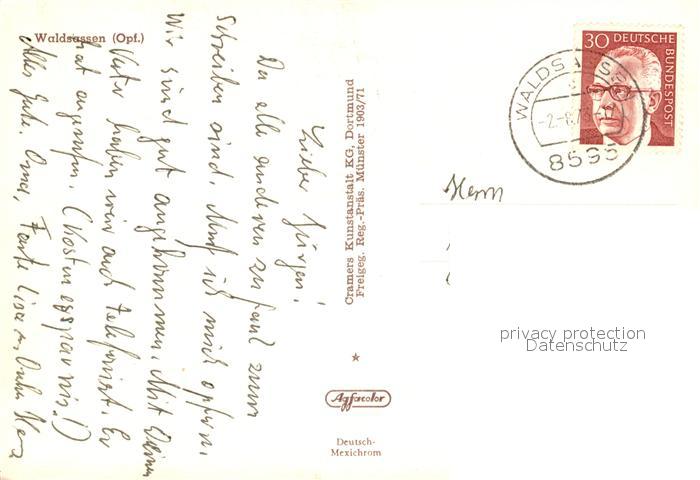 Waldsassen (Opf.)
Lieber Jürgen!
Da alle anderen zu faul zum
Schreiben sind, muß ich mich opfern.
Wir sind gut angekommen. Mit Deinem
Vater haben wir auch telefoniert. Er
hat angerufen. (Kostenersparnis!)
Alles Gute. Oma, Tante Lisa u. Onkel
Cramers Kunstanstalt KG, Dortmund
Freigeg. Reg.-Präs. Münster 1903/71
Agfacolor
Deutsch-
Mexichrom
30 DEUTSCHE
BUNDESPOST
WALDSASSEN
-2.-8.7
8595
Herrn
privacy protection
Datenschutz